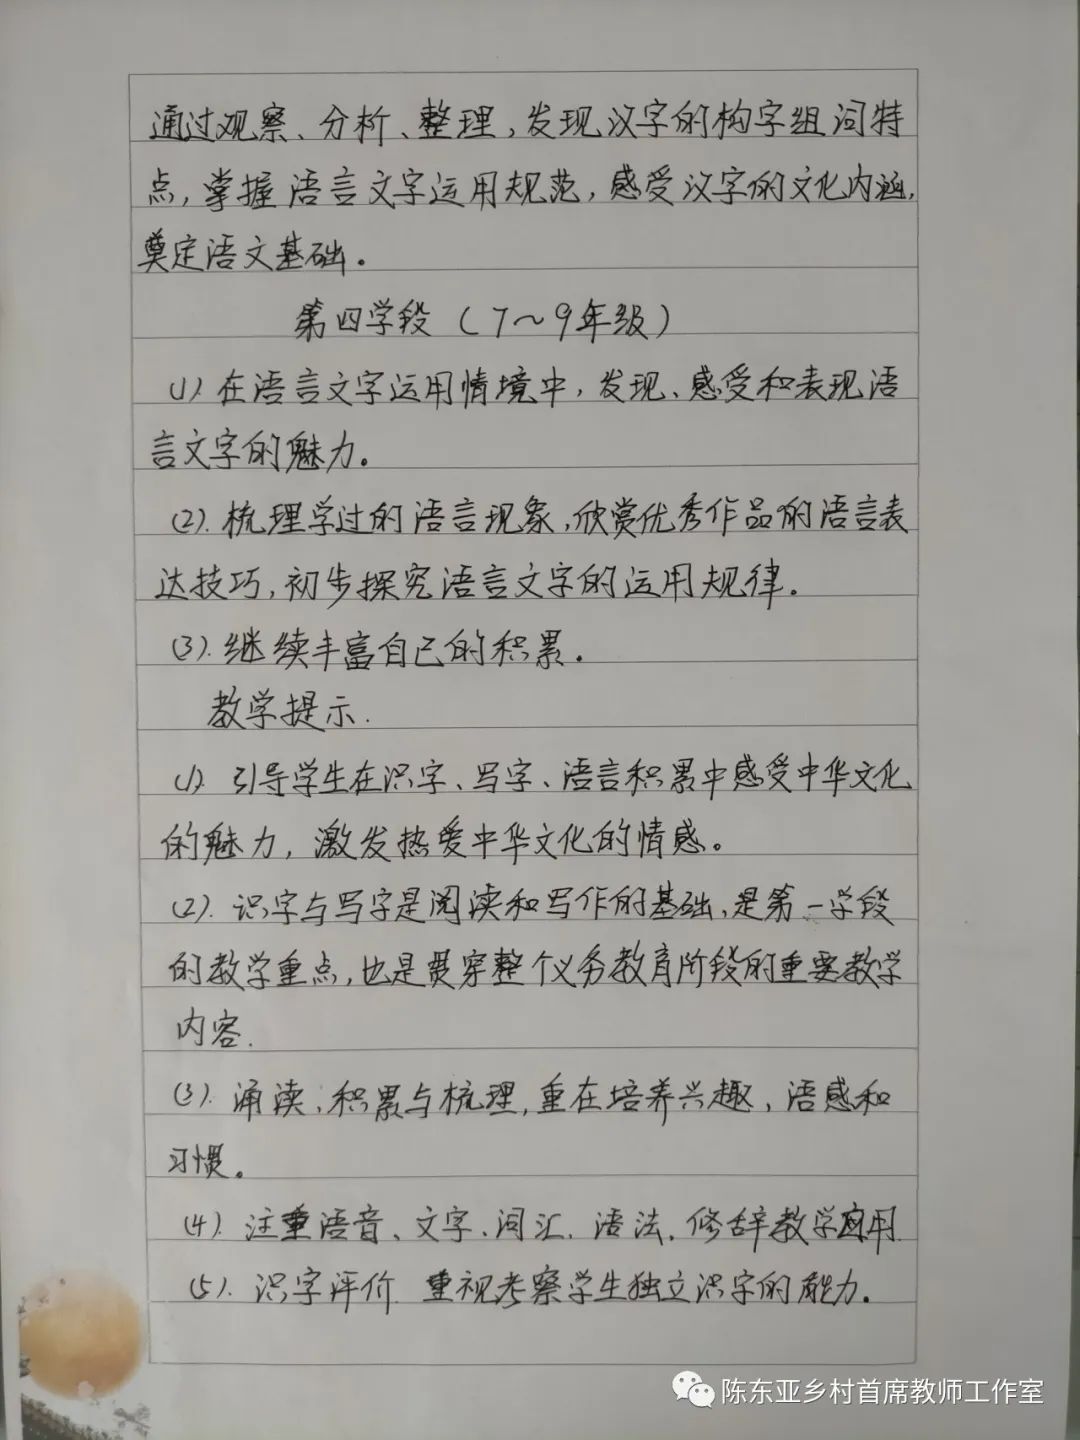 通过观察、分析、整理,发现汉字的构字组词特
点,掌握语言文字运用规范,感受汉字的文化内涵,
奠定语文基础。
第四学段(7~9年级)
(1).在语言文字运用情境中,发现、感受和表现语
言文字的魅力。
(2).梳理学过的语言现象,欣赏优秀作品的语言表
达技巧,初步探究语言文字的运用规律。
(3).继续丰富自己的积累。
教学提示.
(1).引导学生在识字、写字、语言积累中感受中华文化
的魅力,激发热爱中华文化的情感。
(2).识字与写字是阅读和写作的基础,是第一学段
的教学重点,也是贯穿整个义务教育阶段的重要教学
内容.
(3).诵读、积累与梳理,重在培养兴趣、语感和
习惯。
(4).注重语音、文字、词汇、语法、修辞教学应用.
(5).识字评价 重视考察学生独立识字的能力。
陈东亚乡村首席教师工作室